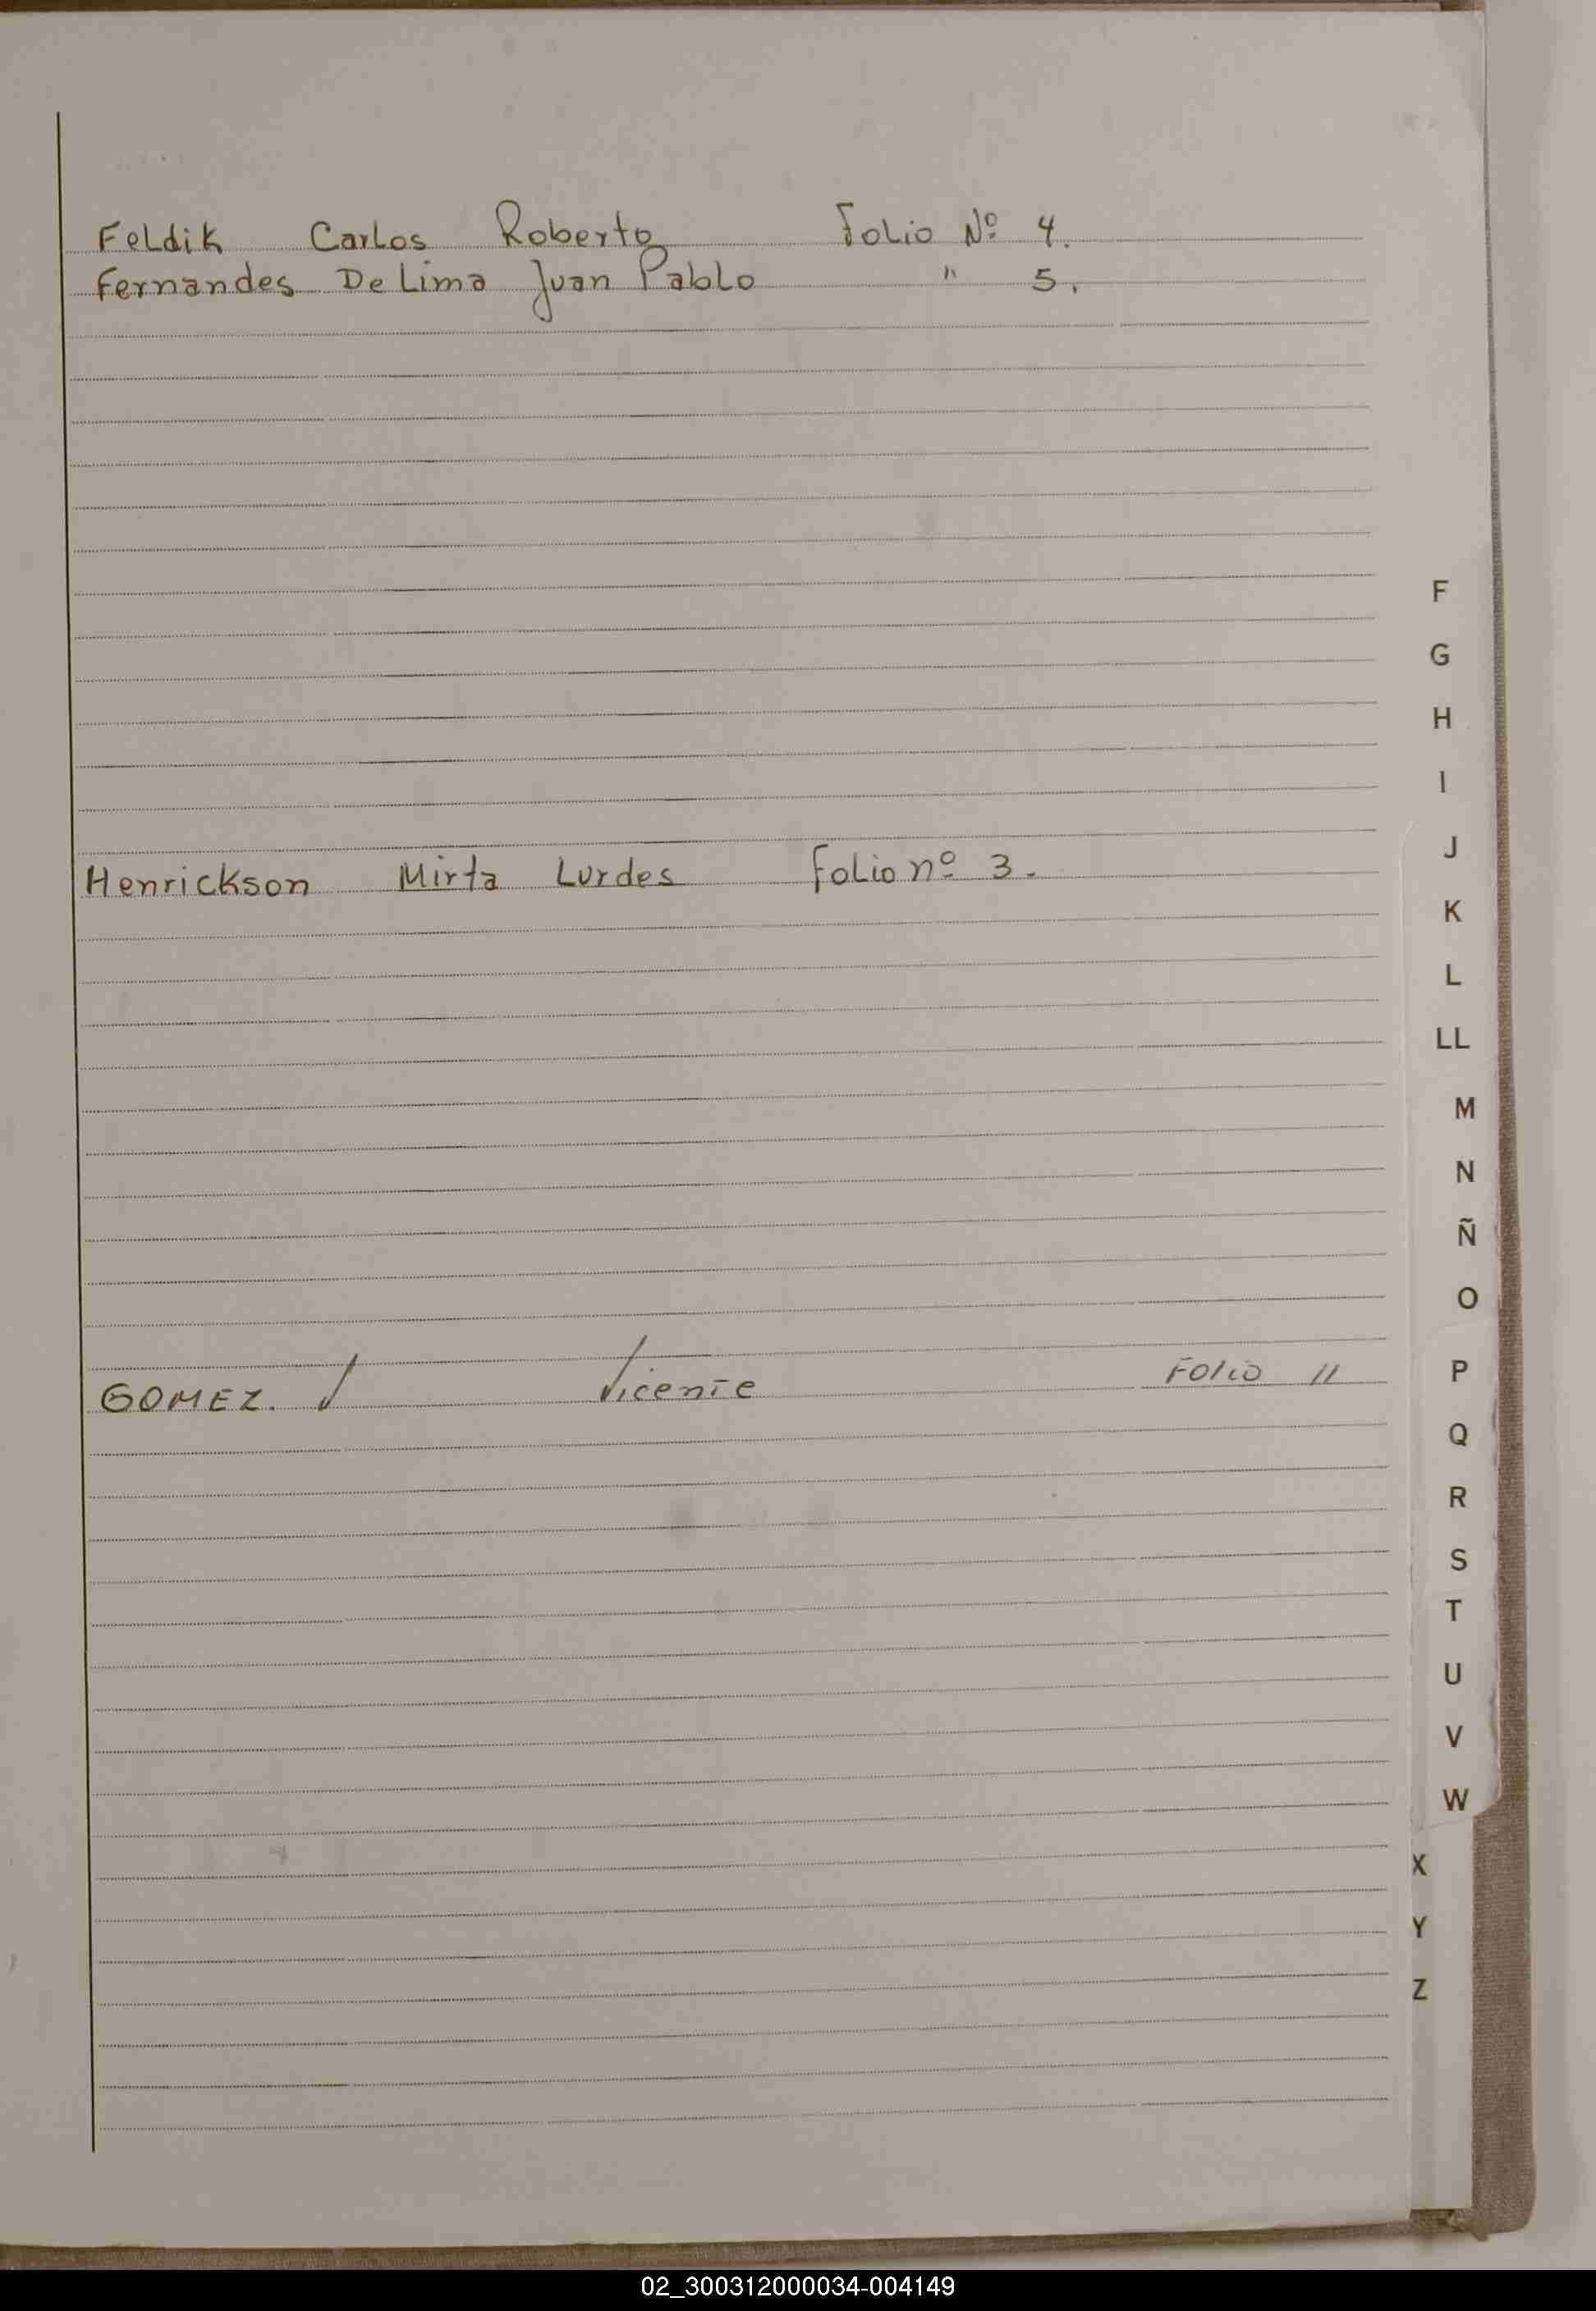 Feldik Carlos Roberto Folio Nº 4.
Fernandes De Lima Juan Pablo " 5.
F
G
H
I
J
Henrickson Mirta Lurdes Folio nº 3.
K
L
LL
M
N
Ñ
O
GOMEZ. / Vicente FOLIO 11
P
Q
R
S
T
U
V
W
X
Y
Z
02_300312000034-004149